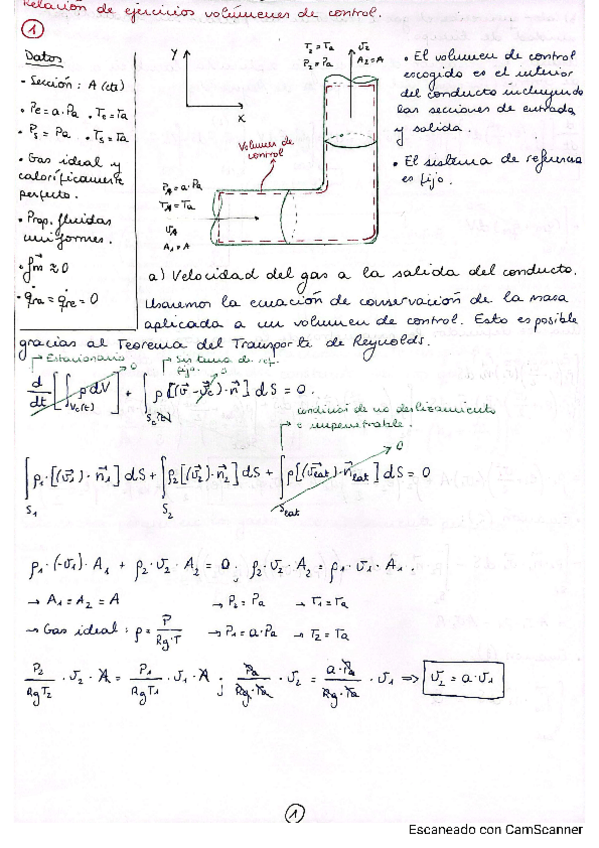 Relación de ejercicios volúmenes de control.
1
Datos
· Sección: A (cte)
· Pe=a·Pa · Te=Ta
· Ps=Pa · Ts=Ta
· Gas ideal y
caloríficamente
perfecto.
· Prop. fluidas
uniformes.
· f⃗m≈0
· q̇ra = q̇re = 0
Y
X
T2=Ta
P2=Pa
v⃗2
A2=A
Volumen de
control
P1=a·Pa
T1=Ta
v⃗1
A1=A
· El volumen de control
escogido es el interior
del conducto incluyendo
las secciones de entrada
y salida.
· El sistema de referencia
es fijo.
a) Velocidad del gas a la salida del conducto.
Usaremos la ecuación de conservación de la masa
aplicada a un volumen de control. Esto es posible
gracias al Teorema del Transporte de Reynolds.
→ Estacionario
→ Sistema de ref.
fijo.
d/dt [∫Vc(t) ρ dV] → 0 + ∫Sc(t) ρ [(v⃗ - v⃗c)·n⃗] dS = 0.
condición de no deslizamiento
→ e impenetrable.
∫S1 ρ1·[(v⃗1)·n⃗1] dS + ∫S2 ρ2[(v⃗2)·n⃗2] dS + ∫Slat ρ[(v⃗lat)·n⃗lat] dS = 0 → 0
ρ1·(-v1)·A1 + ρ2·v2·A2 = 0 ; ρ2·v2·A2 = ρ1·v1·A1.
→ A1=A2=A → P2=Pa → T1=Ta
→ Gas ideal: ρ = P/Rg·T → P1=a·Pa → T2=Ta
P2/RgT2 · v2 · A = P1/RgT1 · v1 · A ; Pa/Rg·Ta · v2 = a·Pa/Rg·Ta · v1 ⇒ v2 = a·v1
1
Escaneado con CamScanner